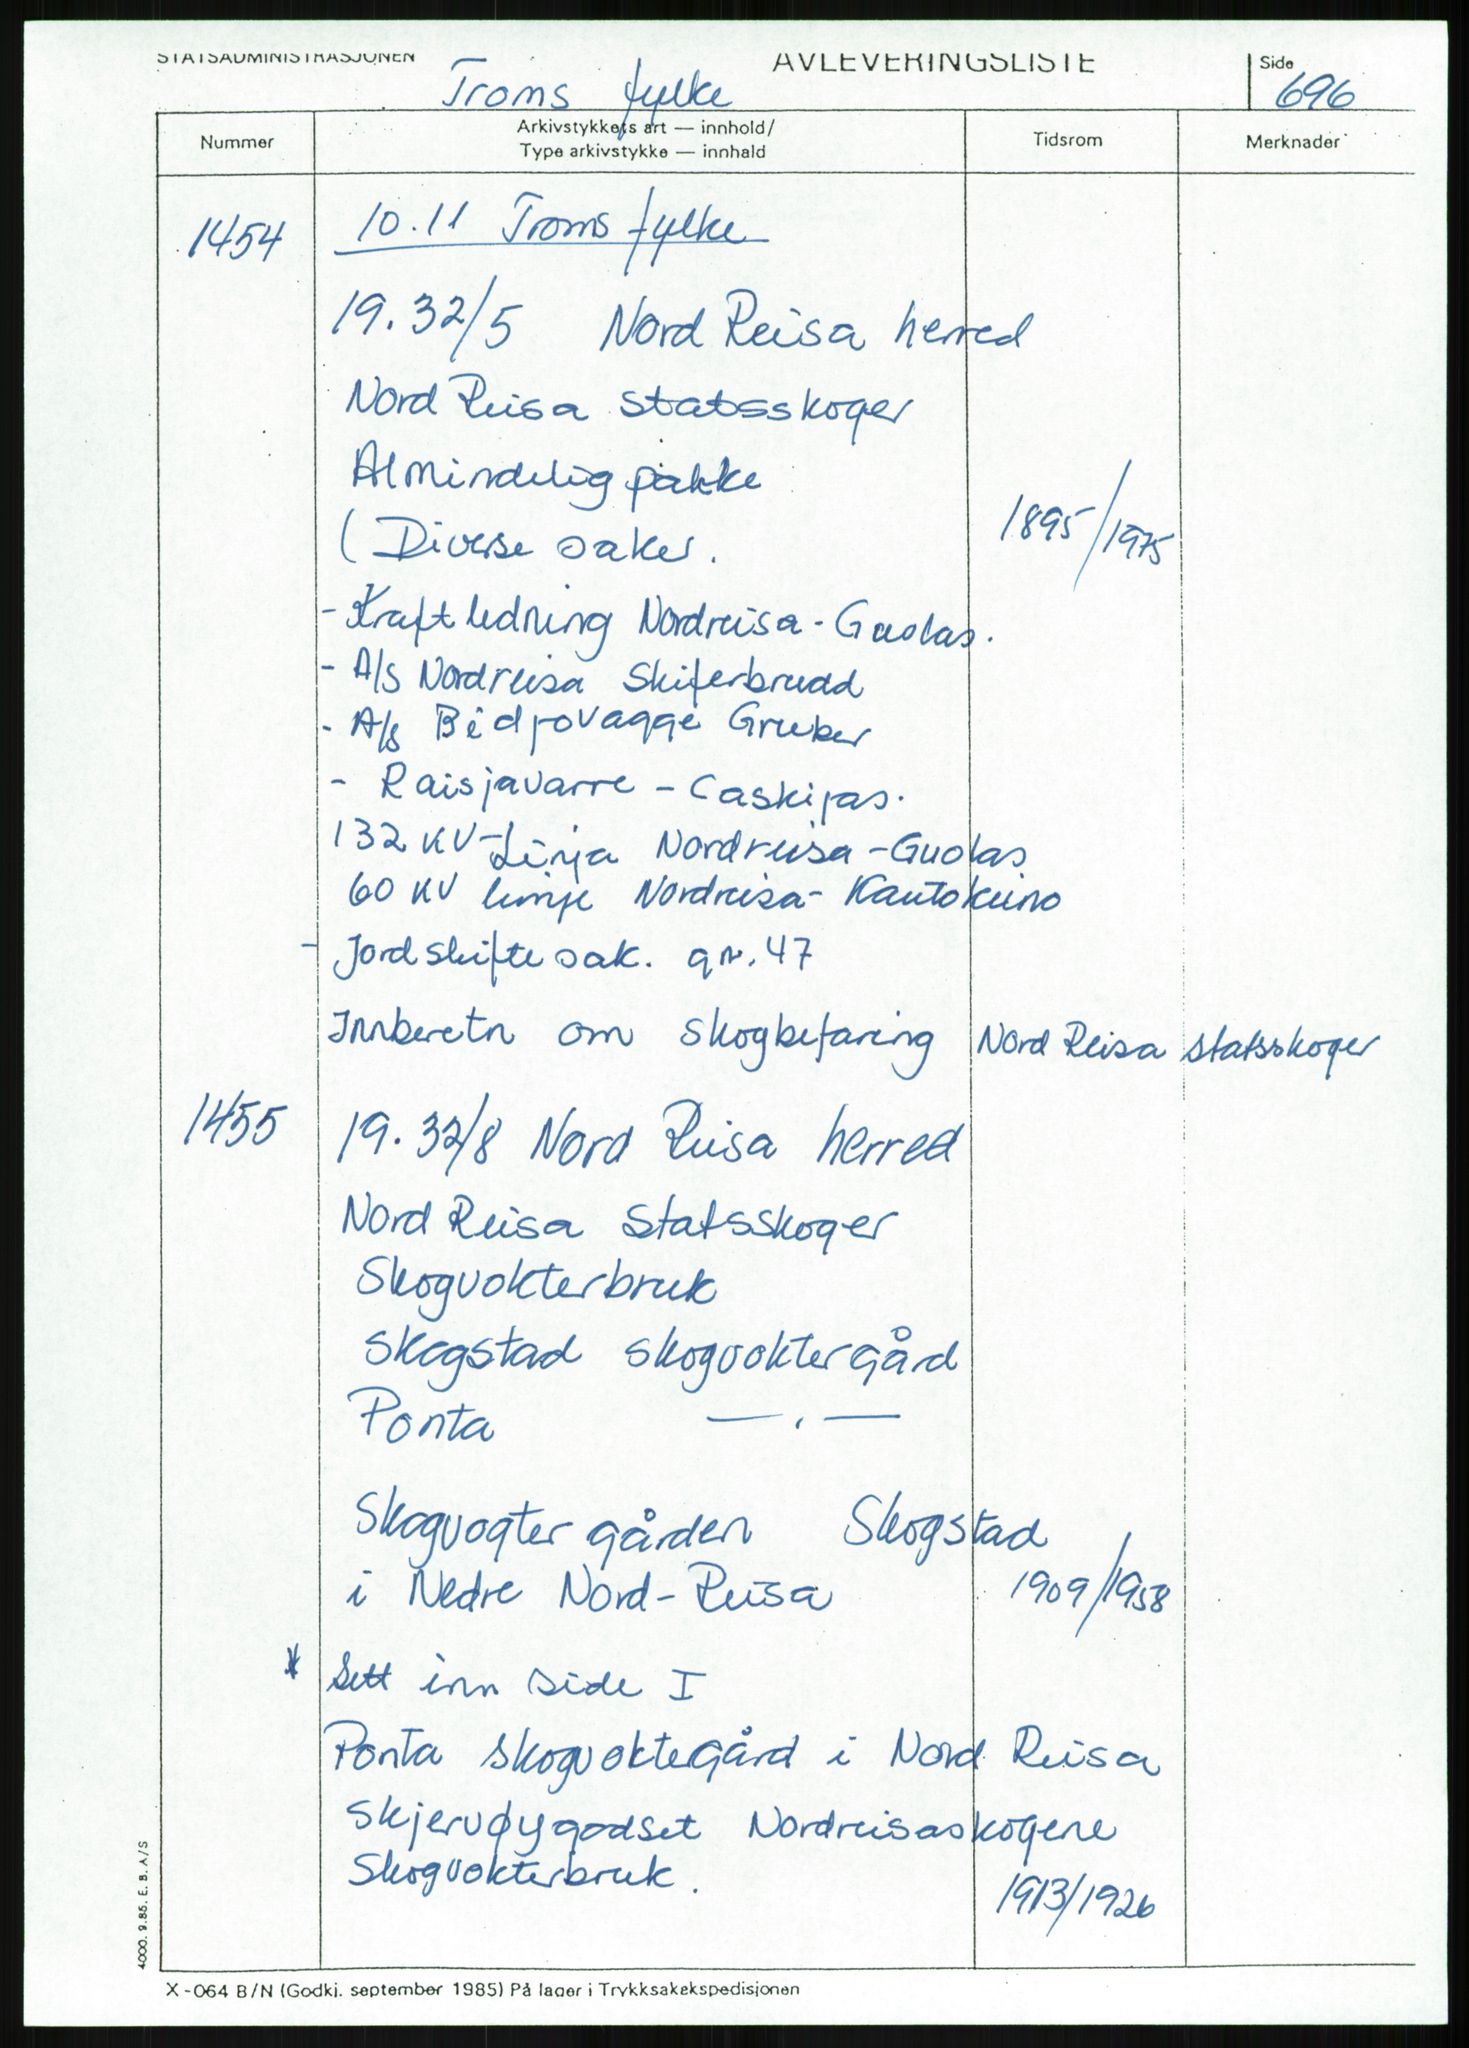 STATSADMINISTRASJONEN
AVLEVERINGSLISTE
Side
Troms fylke
696
Nummer
Arkivstykkets art — innhold/
Type arkivstykke — innhald
Tidsrom
Merknader
1454
10.11 Troms fylke
19.32/5 Nord Reisa herred
Nord Reisa statsskoger
Almindelig pakke
( Diverse saker.
1895/1975
- Kraftledning Nordreisa - Guolas.
- A/S Nordreisa Skiferbrudd
- A/S Bidjovagge Gruber
- Raisjavarre - Caskijas.
132 KV-Linja Nordreisa - Guolas
60 KV linje Nordreisa - Kautokeino
- Jordskifte sak. gnr. 47
Innberetn om skogbefaring Nord Reisa statsskoger
1455
19.32/8 Nord Reisa herred
Nord Reisa Statsskoger
Skogvokterbruk
Skogstad skogvoktergård
Ponta — . —
Skogvogtergården Skogstad
i Nedre Nord-Reisa 1909/1958
* Sett inn side I
Ponta skogvoktergård i Nord Reisa
Skjervøygodset Nordreisaskogene
Skogvokterbruk.
1913/1926
4000. 9.85. E. B. A/S
X-064 B/N (Godkj. september 1985) På lager i Trykksakekspedisjonen